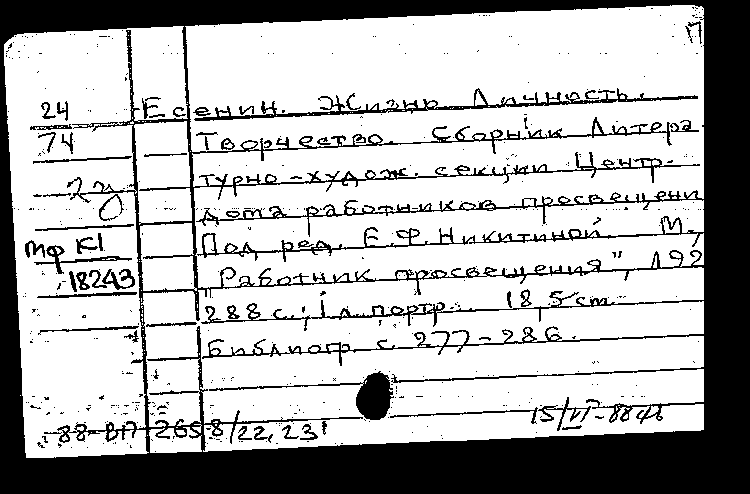 П
24 Есенин. Жизнь Личность.
74 Творчество. Сборник Литера
турно-худож. секции Центр.
дома работников просвещени
Мф К1 Под ред. Е.Ф. Никитиной. М.,
18243 "Работник просвещения", 192
288 с., 1 л. портр. 18,5 cm
Библиогр. с. 277-286.
88-ВП-2658/22,231